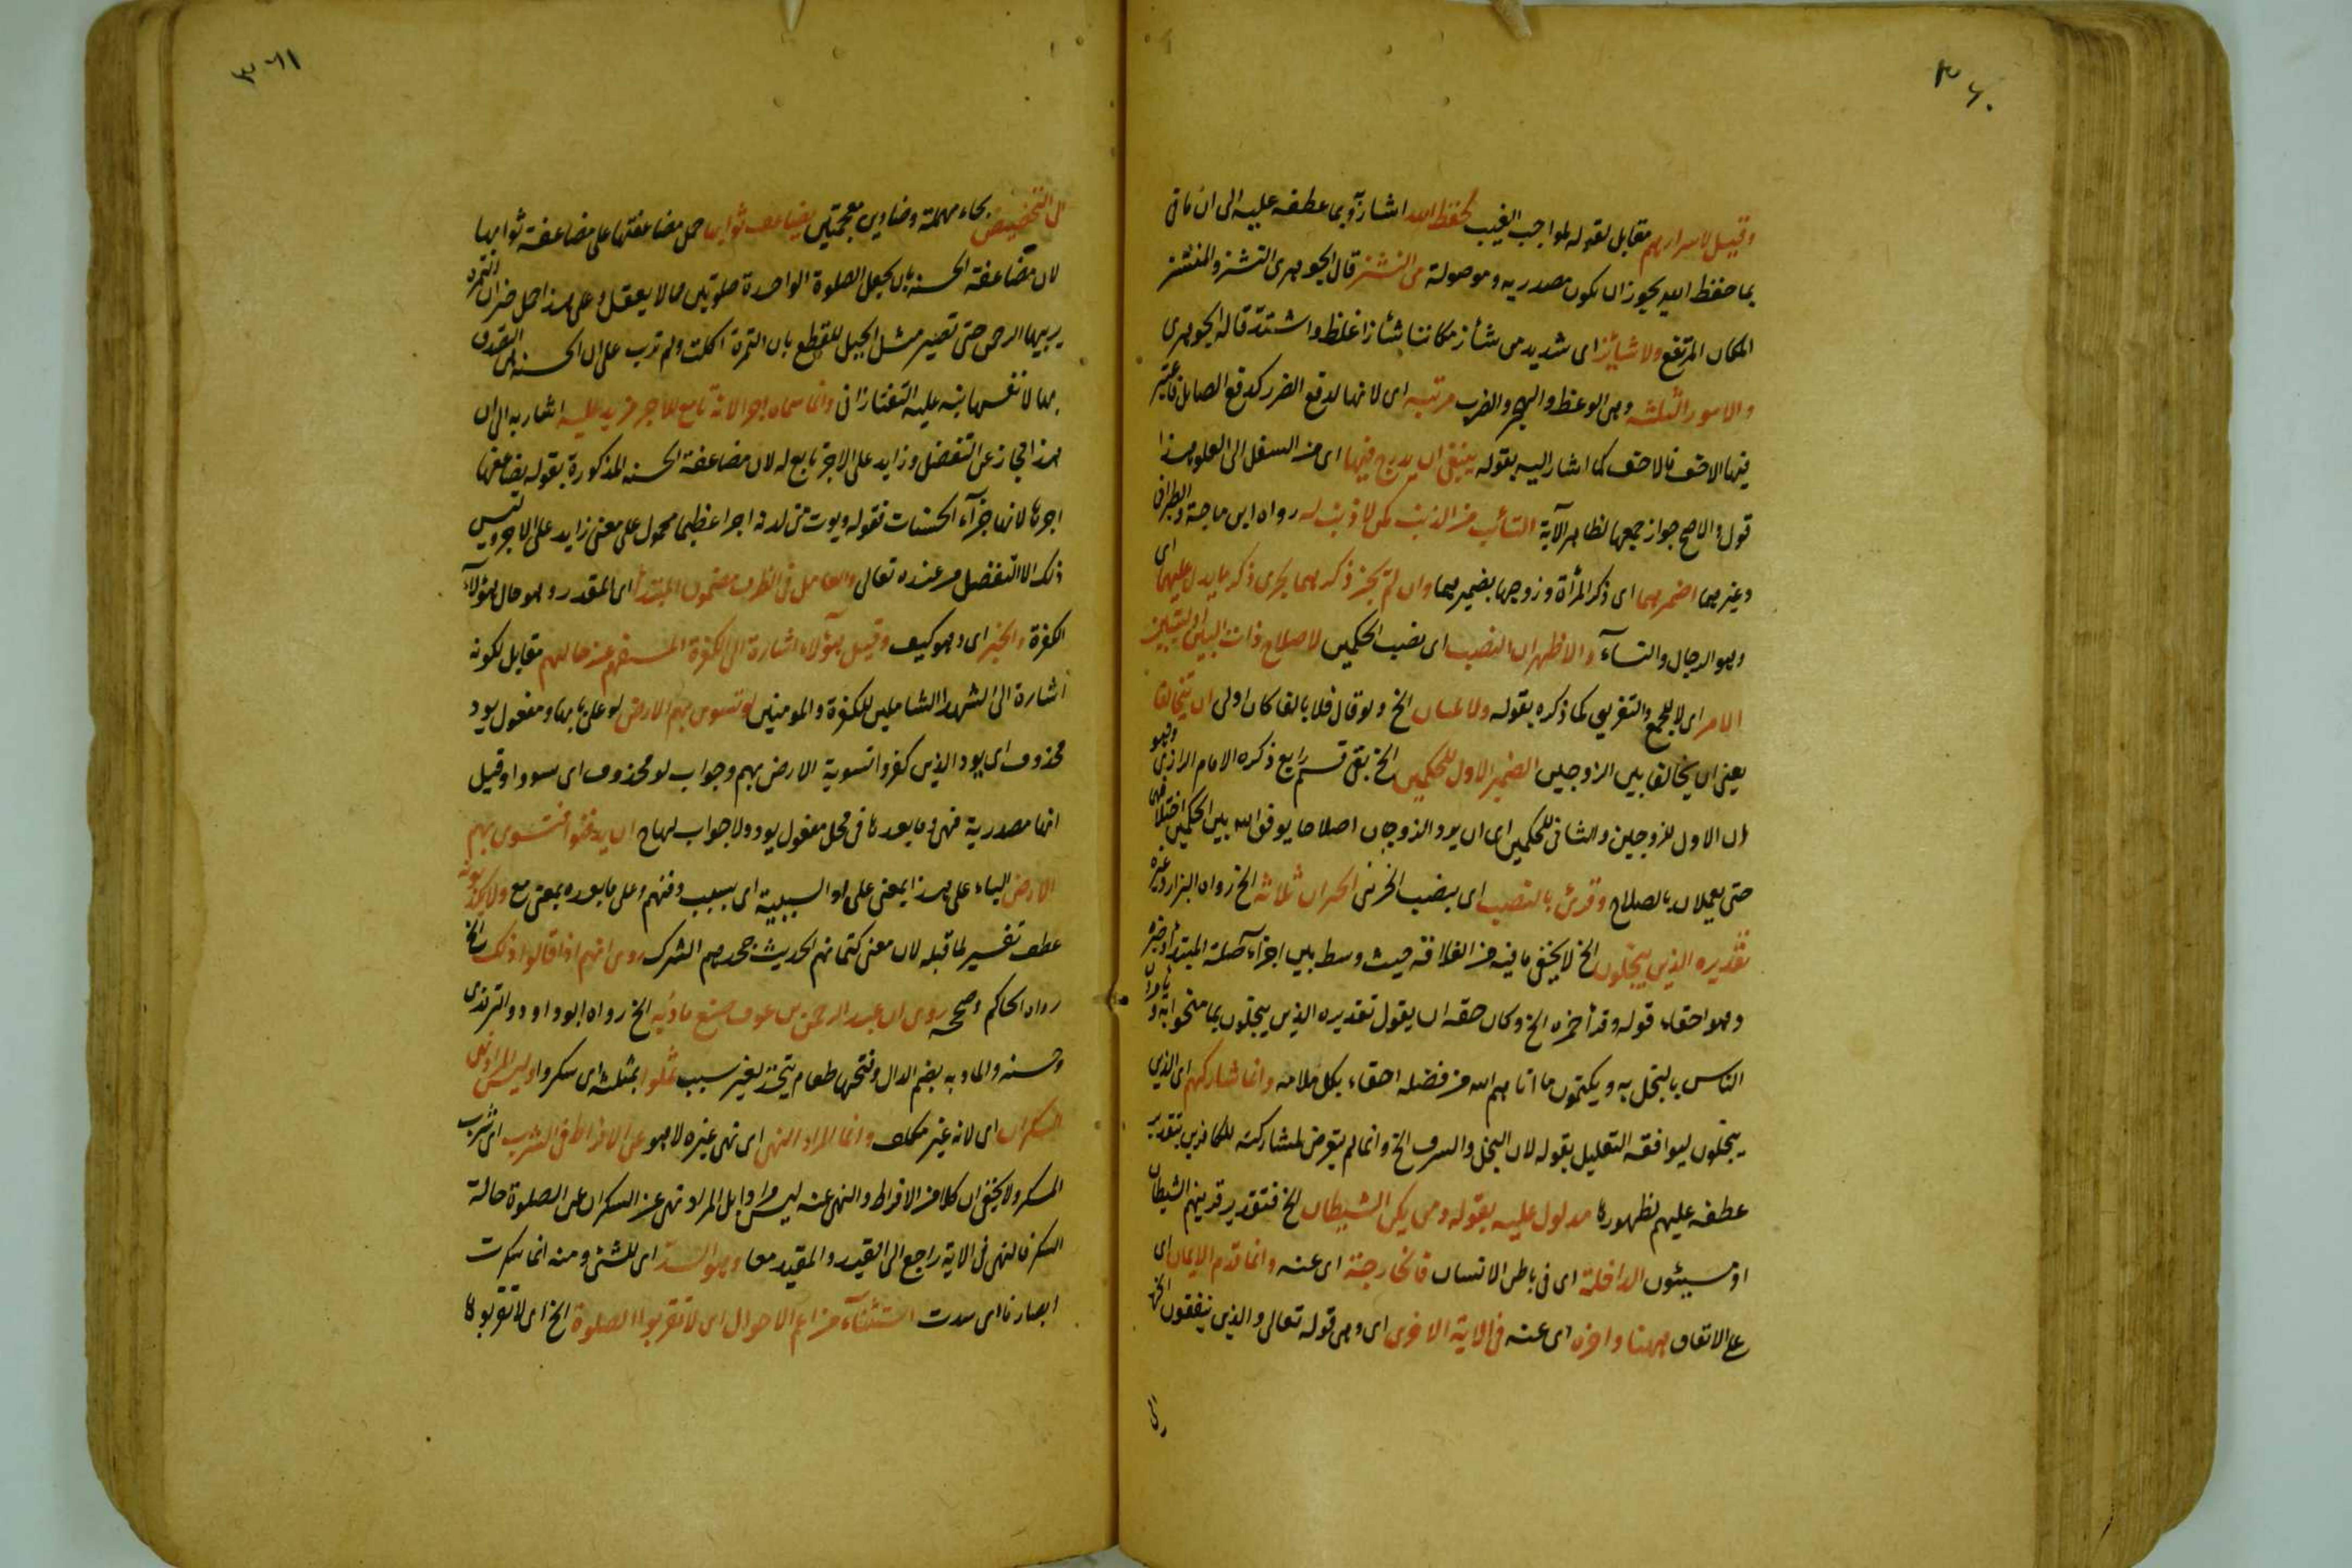 ٣٦٠
وقيل لاسرارهم مقابل لقوله لمواجب الغيب بحفظ الله اشار وبما عطفه عليه الى ان ما في
بما حفظ الله يجوز ان يكون مصدرية وموصولة من النشز قال الجوهري النشز والمنشز
المكان المرتفع ولا شائزا اى شديد من شأز مكاننا شأزا غلظ واشتد قاله الجوهري
والامور الثلثه وهى الوعظ والهجر والضرب مرتبه اى لانها لدفع الضرر كدفع الصايل فاعتبر
فيها الاخف فالاخف كما اشار اليه بقوله ينبغى ان يدرج فيها اى من السفل الى العلو هذا
قول والاصح جواز جمعها لظاهر الآية التائب من الذنب كمن لا ذنب له رواه ابن ماجة والطبرانى
وغيرهما اضمرهما اى ذكر المرأة وزوجها بضميرهما وان لم يجز ذكرهما لجرى ذكر ما يدل عليهما اى
وهو الرجال والنسآء والاظهر ان النصب اى نصب الحكمين لاصلاح ذات البين او لتبيين
الامر اى لا للجمع والتفريق كما ذكره بقوله ولا يليان الخ ولو قال فلا بالفا كان اولى ان يتخالفا
يعنى ان يخالفا بين الزوجين الضمير الاول للحكمين الخ بقى قسم رابع ذكره الامام الرازى وهو
ان الاول للزوجين والثانى للحكمين اى ان يرد الزوجان اصلاحا يوفق الله بين الحكمين اختلافهما
حتى يعملان بالصلاح وقرئ بالنصب اى بنصب الخ الجيران ثلاثه الخ رواه البزار وغيره
تقديره الذين يبخلون الخ لا يخفى ما فيه من القلاقه حيث وسط بين اجزاء صلة المبتدأ وخبره
وهو احقاء قوله وقد أخره الخ وكان حقه ان يقول تقديره الذين يبخلون بما منحوا به ويأمرون
الناس بالبخل به ويكتمون ما اتاهم الله من فضله احقاء بكل ملامه وانما شاركهم اى الذين
يبخلون ليوافقه التعليل بقوله لان البخل والسرف الخ وانما لم يتعرض لمشاركته للكافرين بتقدير
عطفه عليهم لظهورها مدلول عليه بقوله ومن يكن الشيطان الخ فتقديره قرينهم الشيطان
او مسيئون الداخلة اى فى باطن الانسان فالخارجة اى عنه وانما قدم الايمان اى
على الاتفاق ههنا واخره اى عنه فى الاية الاخرى اى وهى قوله تعالى والذين ينفقون الخ
٣٦١
التحضيض بحاء مهملة وضادين معجمتين يضاعف ثوابها حمل مضاعفتها على مضاعفة ثوابها
لان مضاعفة الحسنه بان يجعل الصلوة الواحدة صلوتين مما لا يعقل وعلى هذا حمل خبر ان التمرة
يربيها الرحمن حتى تصير مثل الجبل للقطع بان التمرة اكلت ولم ترب على ان الحسنه هى التصدق
بها لا نفسها نبه عليه التفتازانى وانما سماه اجرا لانه تابع للاجر مزيد عليه اشار به الى ان
هذا مجاز عن التفضل وزايد على الاجر تابع له لان مضاعفة الحسنه المذكورة بقوله يضاعفها
اجرها لانها جزآء الحسنات فقوله ويؤت من لدنه اجرا عظيما محمول على معنى زايد على الاجر وليس
ذلك الا التفضل من عنده تعالى والعامل فى الظرف مضمون المبتدأ اى المقدر وهو حال هؤلآء
الكفرة والخبر اى وهو كيف وقيل هؤلاء اشارة الى الكفرة المستفهم عن حالهم مقابل لكونه
اشارة الى الشهدا الشاملين للكفرة والمومنين لو تسوى بهم الارض لو على بابها ومفعول يود
محذوف اى يود الذين كفروا تسوية الارض بهم وجواب لو محذوف اى لسروا وقيل
انها مصدرية فهى وما بعدها فى محل مفعول يود ولا جواب لها ح ان يدفنوا فتسوى بهم
الارض الباء على هذا بمعنى على او السببية اى بسبب دفنهم وعلى ما بعده بمعنى مع ولا يكذبونه
عطف تفسير لما قبله لان معنى كتمانهم الحديث جحدهم الشرك روى انهم اذا قالوا ذلك الخ
رواه الحاكم وصححه روى ان عبد الرحمن بن عوف صنع مأدبه الخ رواه ابو داود والترمذى
وحسنه والمادبه بضم الدال وفتحها طعام يتخذ لغير سبب ثملوا بمثلثه اى سكروا وليس المراد نهى
السكران اى لانه غير مكلف وانما المراد النهى اى نهى غيره لا هو عن الافراط فى الشرب اى شرب
المسكر ولا يخفى ان كلا من الافراط والنهى عنه ليس مرادا بل المراد نهى عن السكران عن الصلوة حالة
السكر فالنهى فى الاية راجع الى القيد والمقيد معا وهو السد اى للشئ ومنه انما سكرت
ابصارنا اى سدت استثنآء من اعم الاحوال اى لا تقربوا الصلوة الخ اى لا تقربوها